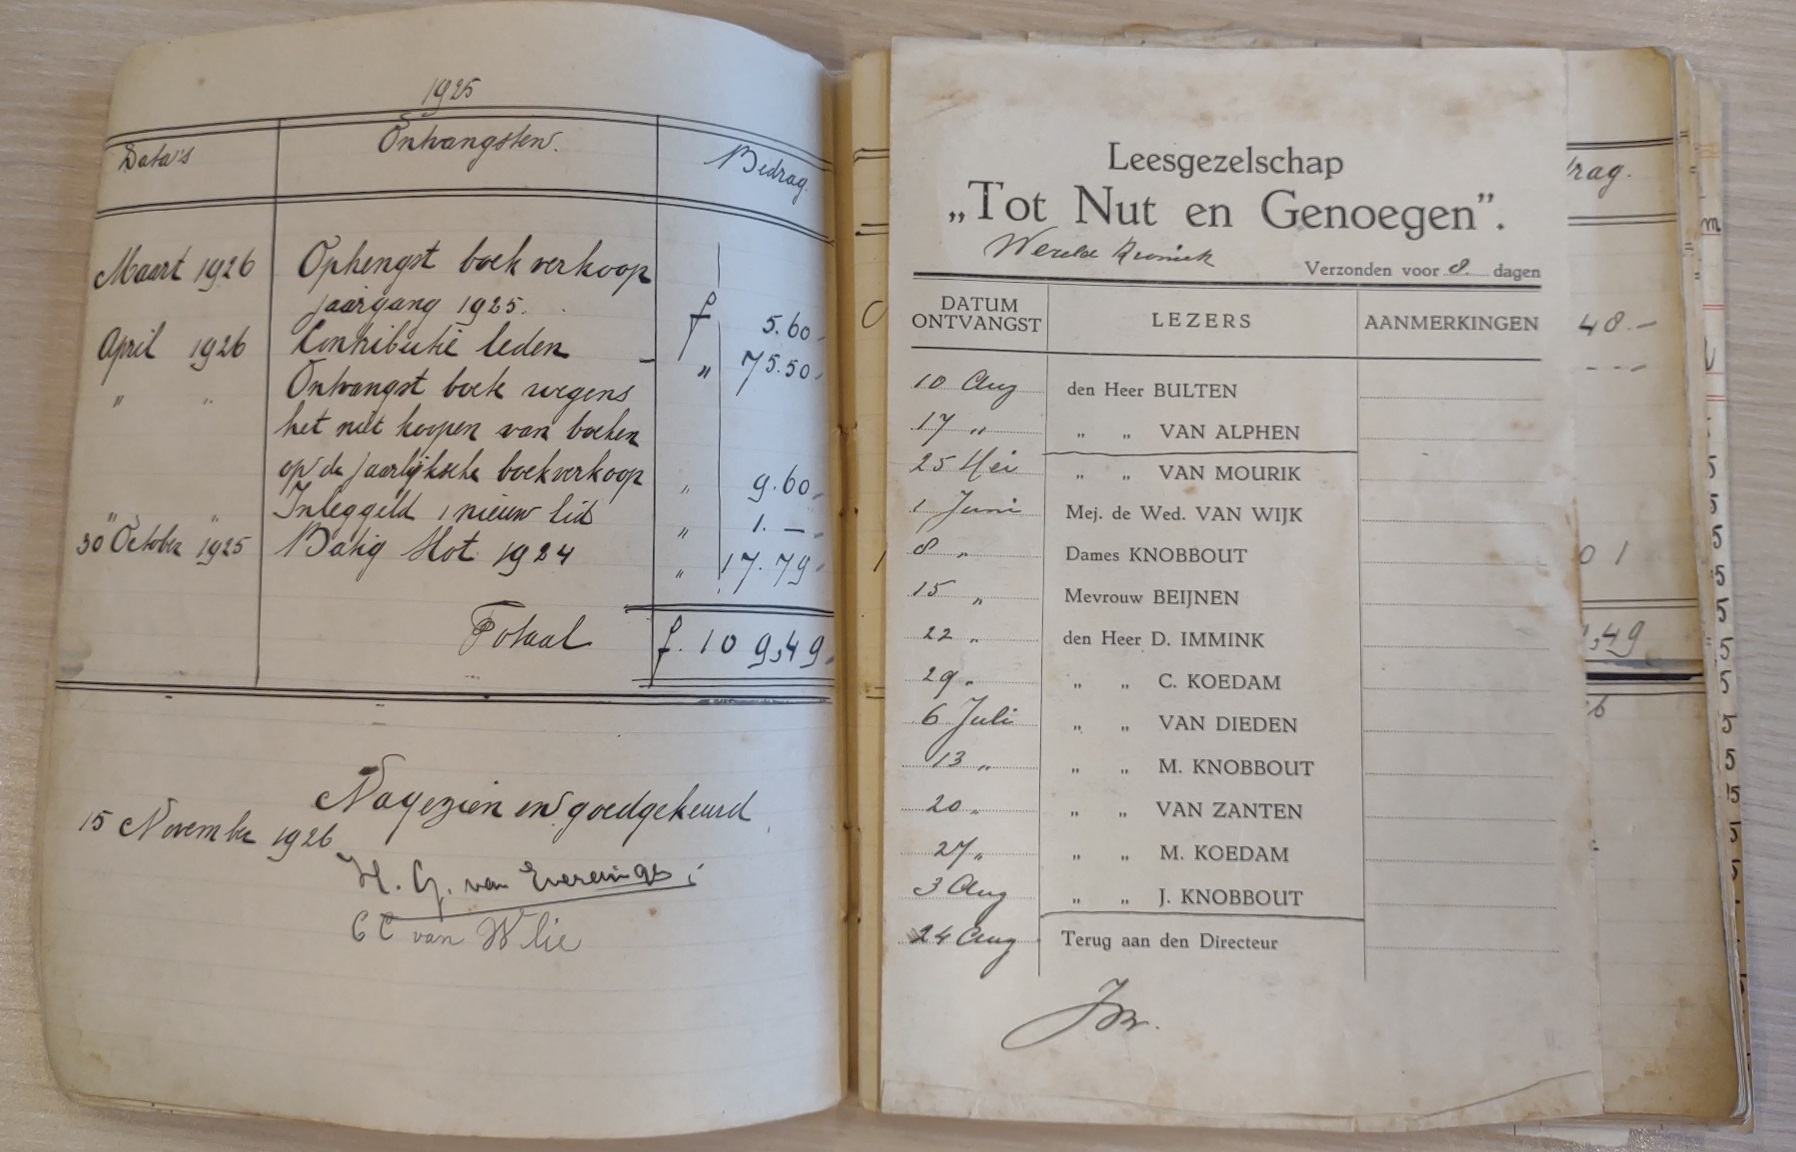 1925
Data's Ontvangsten. Bedrag.
Maart 1926 Ophengst boek verkoop
jaargang 1925. f 5.60
April 1926 Contributie leden „ 75.50
„ „ Ontvangst boek wegens
het niet koopen van boeken
op de jaarlijksche boekverkoop „ 9.60
„ „ Inleggeld 1 nieuw lid „ 1. —
30 October 1925 Batig Slot 1924 „ 17.79
Totaal f. 109,49
Nagezien en goedgekeurd
15 November 1926
H. G. van
C C van
Leesgezelschap
„Tot Nut en Genoegen”.
Wereld Kroniek
Verzonden voor 8 dagen
DATUM ONTVANGST LEZERS AANMERKINGEN
10 Aug den Heer BULTEN
17 „ „ „ VAN ALPHEN
25 Mei „ „ VAN MOURIK
1 Juni Mej. de Wed. VAN WIJK
8 „ Dames KNOBBOUT
15 „ Mevrouw BEIJNEN
22 „ den Heer D. IMMINK
29 „ „ „ C. KOEDAM
6 Juli „ „ VAN DIEDEN
13 „ „ „ M. KNOBBOUT
20 „ „ „ VAN ZANTEN
27 „ „ „ M. KOEDAM
3 Aug „ „ J. KNOBBOUT
24 Aug Terug aan den Directeur
rag.
48.—
01
,49